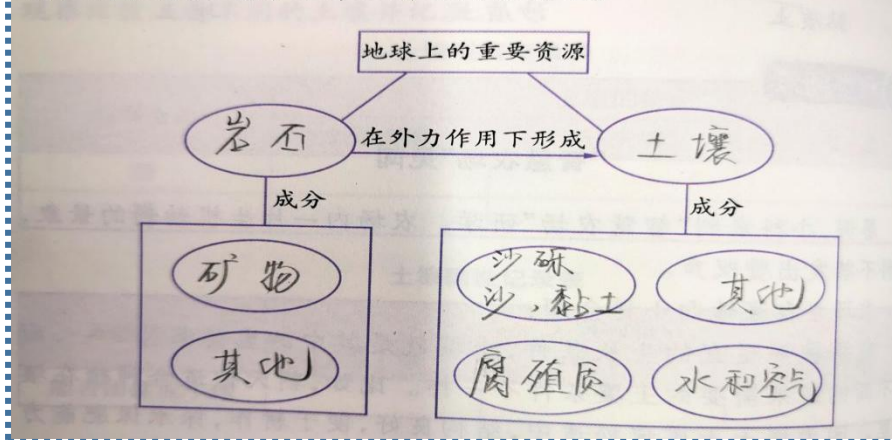 地球上的重要资源
岩石
在外力作用下形成
土壤
成分
成分
矿物
沙砾
沙，黏土
其他
其他
腐殖质
水和空气